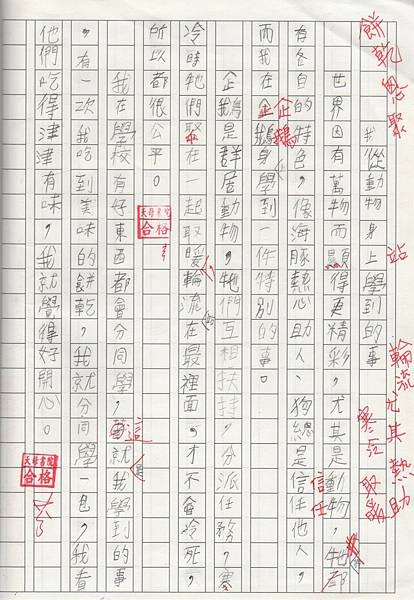 餅乾
聚
站
輪流
尤其
熱助
取暖
我從動物身上學到的事
世界因有萬物而顯得更精彩，尤其是動物，牠都
有各自的特色，像海豚熱心助人、狗總是信任他人，
信任
而我在企鵝身學到一件特別的事。
企鵝
企鵝是群居動物，牠們互相扶持，分派任務，寒
冷時牠們聚在一起取暖輪流在最裡面，才不會冷死，
所以都很公平。
合格
我在學校有好東西都會分同學，這就我學到的事
，有一次我吃到美味的餅乾，我就分同學一包，我看
他們吃得津津有味，我就覺得好開心。
合格